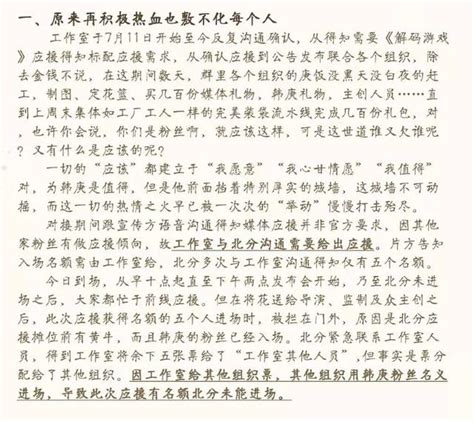 一、原来再积极热血也敷不化每个人
工作室于7月11日开始至今反复沟通确认，从得知需要《解码游戏
》应援得知标配应援需求，从确认应援到公告发布联合各个组织，除
去金钱不说，在这期间数天，群里各个组织的庚饭没黑天没白夜的赶
工，制图、定花篮、买几百份媒体礼物，韩庚礼物，主创人员……直
到上周末集体如工厂工人一样的完美装袋流水线完成几百份礼包，对
，也许你会说，你们是粉丝啊，就应该这样，可是这世道谁又欠谁呢
？又有什么是应该的呢？
一切的“应该”都建立于“我愿意”“我心甘情愿”“我值得”
对，为韩庚是值得，但是他前面挡着特别厚实的城墙，这城墙不可动
摇，而这一切的热情之火早已被一次次的“举动”慢慢打击殆尽。
对接期间跟宣传方语音沟通得知媒体应援并非官方要求，因其他
家粉丝有做应援倾向，故工作室与北分沟通需要给出应援。片方告知
入场名额需由工作室给，北分多次与工作室沟通得知仅有五个名额。
今日到场，从早十点起直至下午两点发布会开始，乃至北分未进
场之后，大家都忙于前线应援。但在将花送给导演、监制及众主创之
后，此次应援获得名额的五个人进场时，被拦在门外，原因是北分应
援摊位前有黄牛，而且韩庚的粉丝已经入场。北分紧急联系工作室人
员，得到工作室将余下五张票给了“工作室其他人员”,但事实是票分
配给了其他组织。因工作室给其他组织票，其他组织用韩庚粉丝名义
进场，导致此次应援有名额北分未能进场。